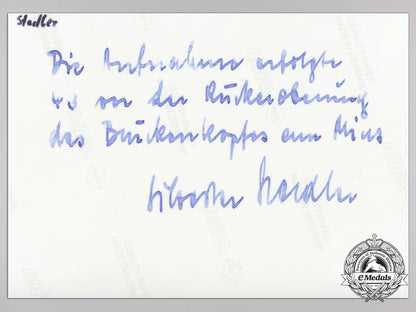 Stadler
Die Aufnahme erfolgte
43 vor der Rückeroberung
des Brückenkopfes am Mius
Silvester Stadler
AGFA
eMedals